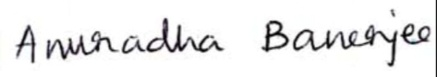 Anuradha Banerjee